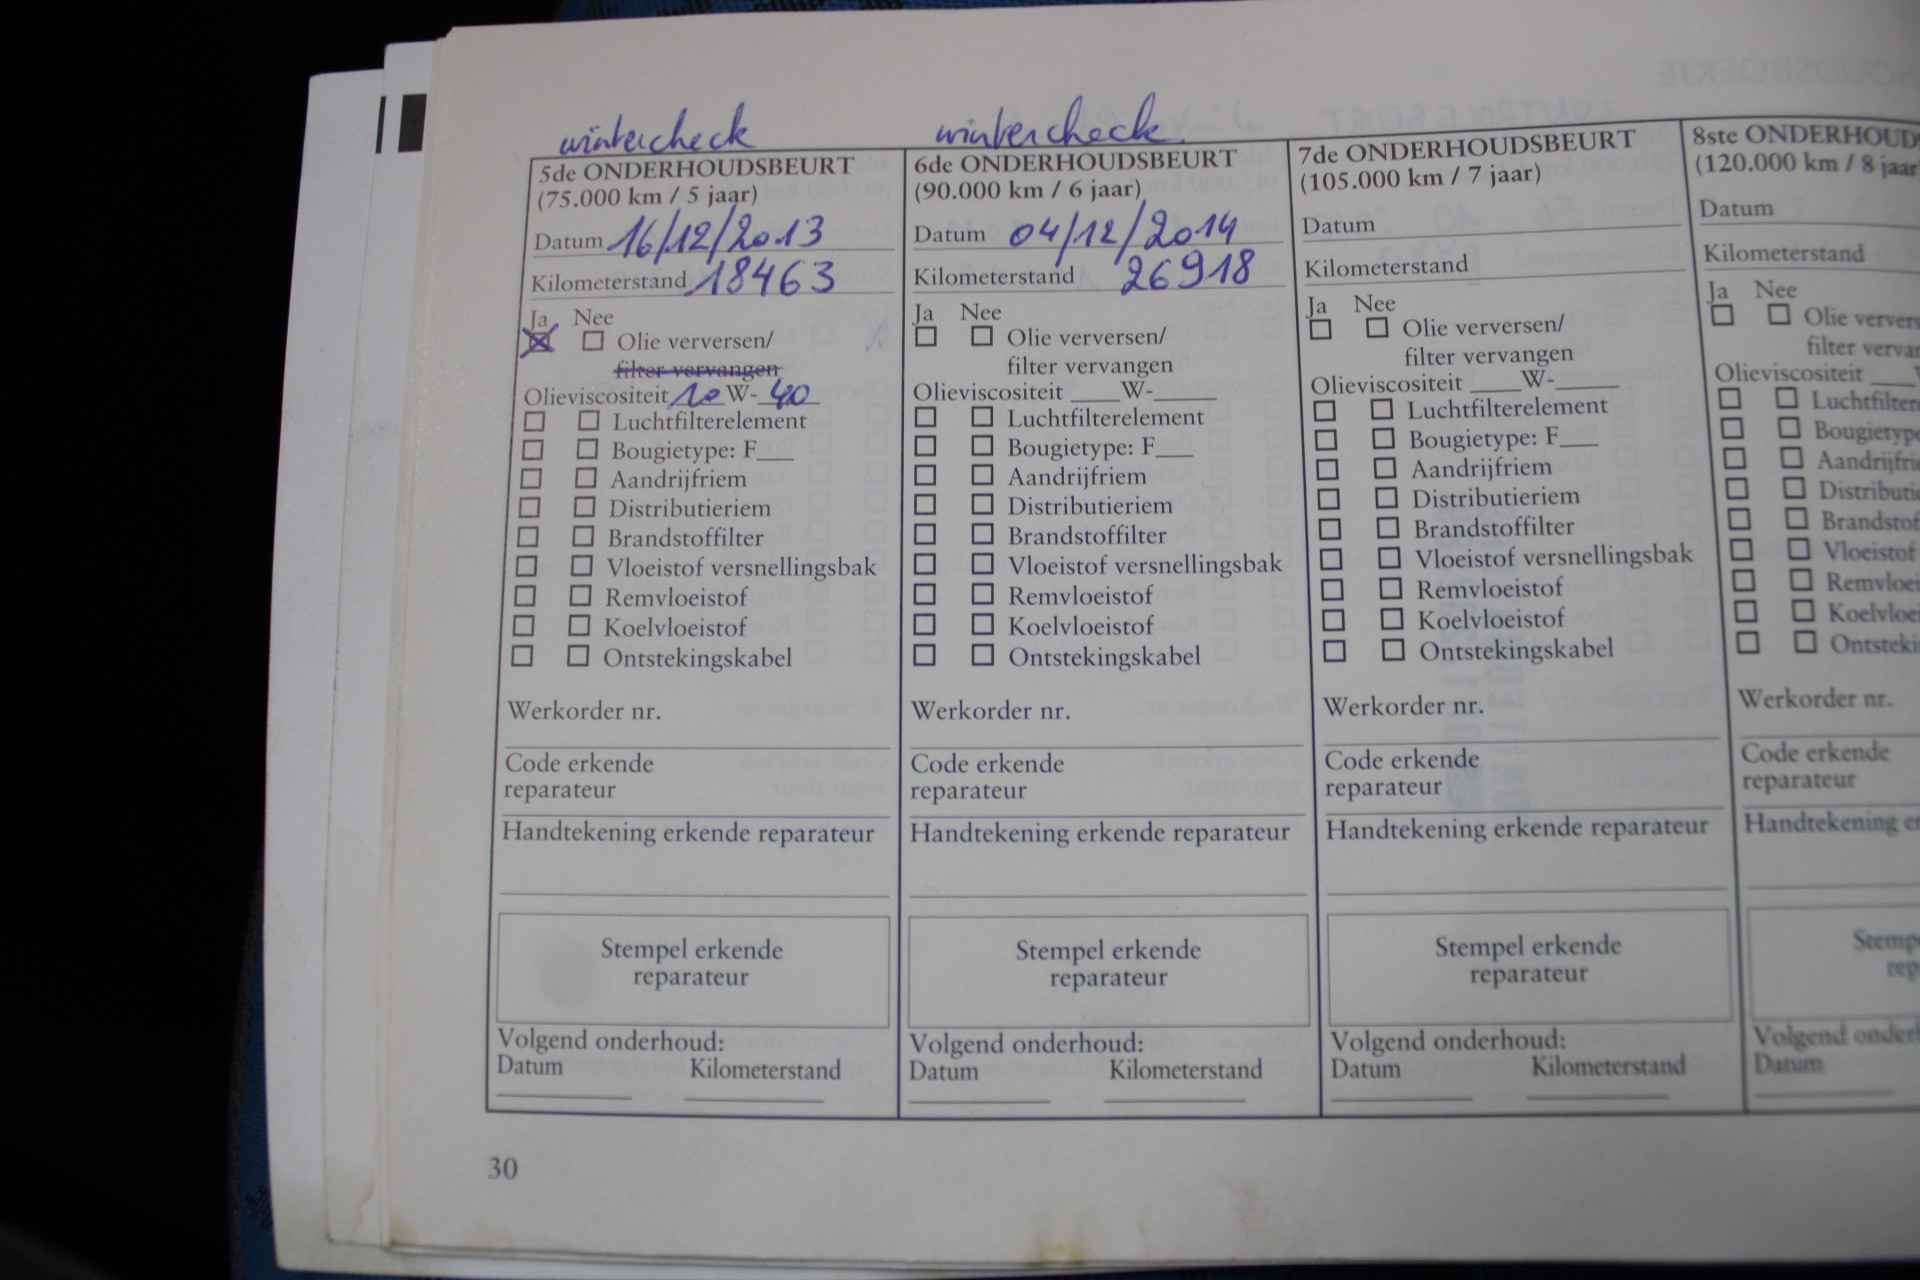 wintercheck
5de ONDERHOUDSBEURT
(75.000 km / 5 jaar)
Datum 16/12/2013
Kilometerstand 18463
Ja Nee
Olie verversen/
filter vervangen
Olieviscositeit 10 W- 40
Luchtfilterelement
Bougietype: F___
Aandrijfriem
Distributieriem
Brandstoffilter
Vloeistof versnellingsbak
Remvloeistof
Koelvloeistof
Ontstekingskabel
Werkorder nr.
Code erkende
reparateur
Handtekening erkende reparateur
Stempel erkende
reparateur
Volgend onderhoud:
Datum Kilometerstand
wintercheck
6de ONDERHOUDSBEURT
(90.000 km / 6 jaar)
Datum 04/12/2014
Kilometerstand 26918
Ja Nee
Olie verversen/
filter vervangen
Olieviscositeit ____W-_____
Luchtfilterelement
Bougietype: F___
Aandrijfriem
Distributieriem
Brandstoffilter
Vloeistof versnellingsbak
Remvloeistof
Koelvloeistof
Ontstekingskabel
Werkorder nr.
Code erkende
reparateur
Handtekening erkende reparateur
Stempel erkende
reparateur
Volgend onderhoud:
Datum Kilometerstand
7de ONDERHOUDSBEURT
(105.000 km / 7 jaar)
Datum
Kilometerstand
Ja Nee
Olie verversen/
filter vervangen
Olieviscositeit ____W-_____
Luchtfilterelement
Bougietype: F___
Aandrijfriem
Distributieriem
Brandstoffilter
Vloeistof versnellingsbak
Remvloeistof
Koelvloeistof
Ontstekingskabel
Werkorder nr.
Code erkende
reparateur
Handtekening erkende reparateur
Stempel erkende
reparateur
Volgend onderhoud:
Datum Kilometerstand
8ste ONDERHOUD
(120.000 km / 8 jaar
Datum
Kilometerstand
Ja Nee
Olie ververs
filter vervan
Olieviscositeit ___
Luchtfilter
Bougietype
Aandrijfri
Distributi
Brandstof
Vloeistof
Remvloei
Koelvloei
Ontsteki
Werkorder nr.
Code erkende
reparateur
Handtekening er
Stemp
rep
Volgend onderh
Datum
30